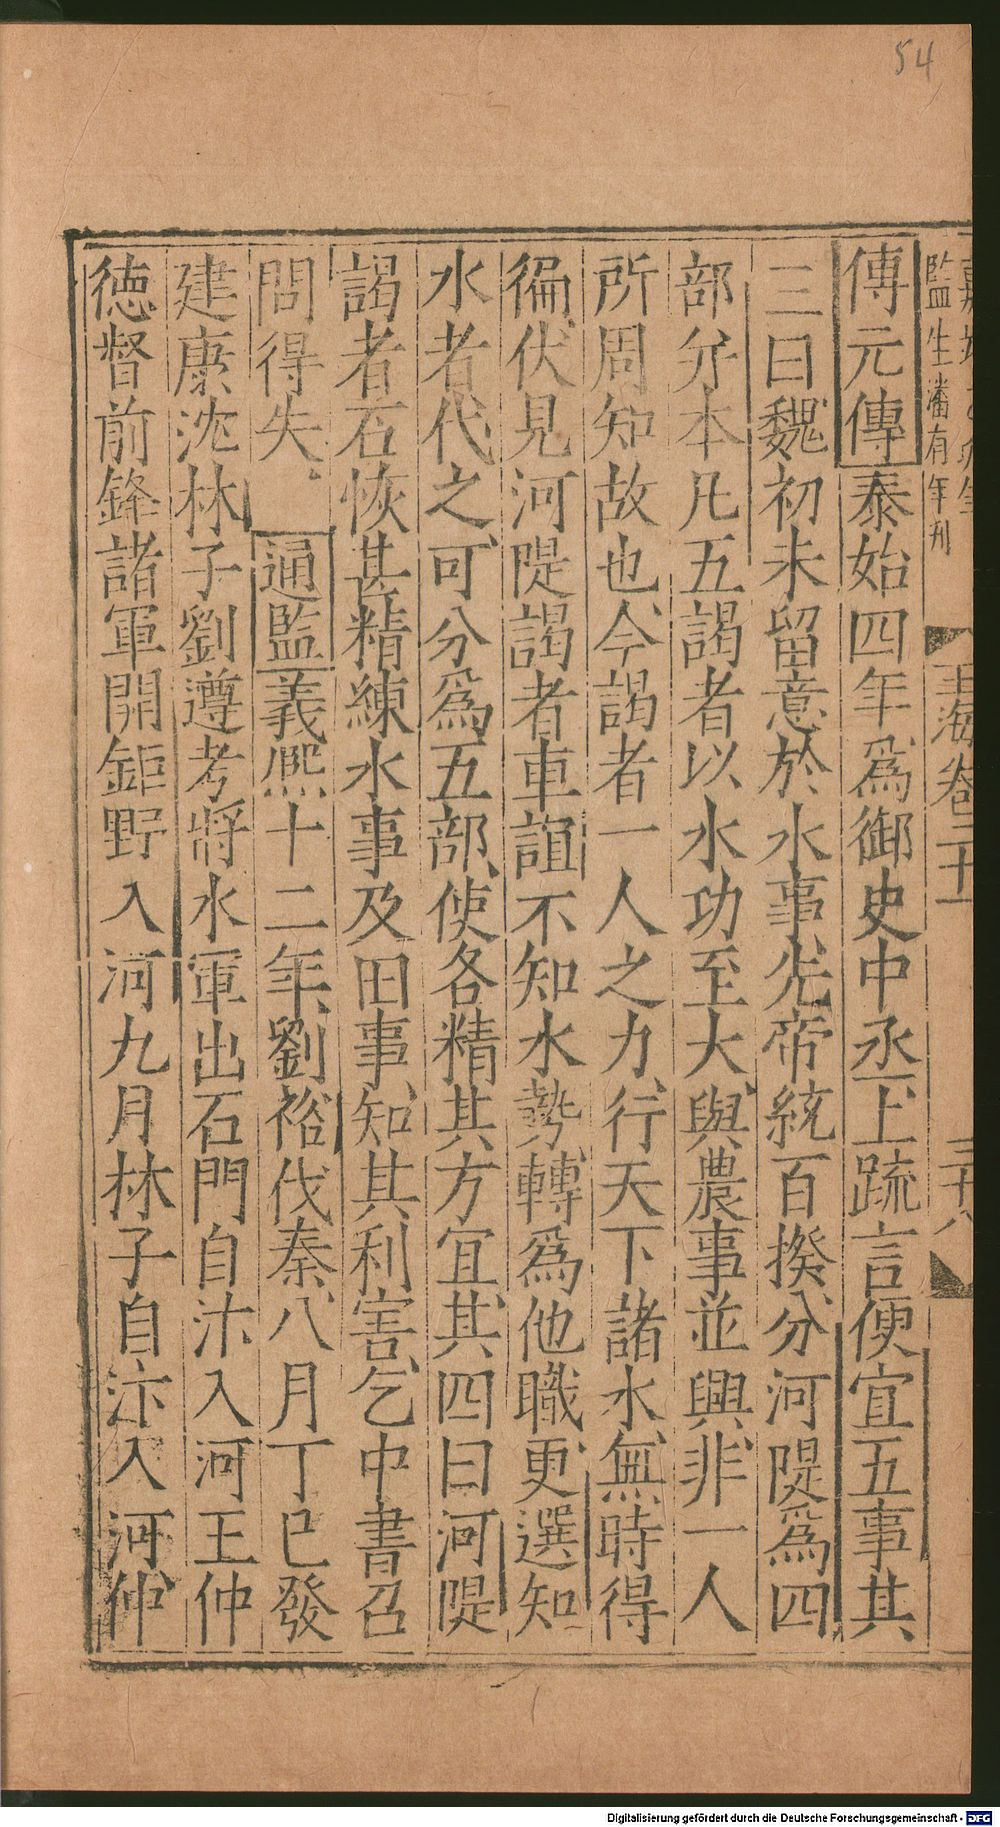 54
監生潘有年刊
玉海卷二十一
三十八
傳元傳泰始四年爲御史中丞上疏言便宜五事其
三曰魏初未留意於水事先帝統百揆分河隄爲四
部分本凡五謁者以水功至大與農事並興非一人
所周知故也今謁者一人之力行天下諸水無時得
徧伏見河隄謁者車誼不知水勢轉爲他職更選知
水者代之可分爲五部使各精其方宜其四曰河隄
謁者石恢甚精練水事及田事知其利害乞中書召
問得失　通監義熙十二年劉裕伐秦八月丁巳發
建康沈林子劉遵考將水軍出石門自汴入河王仲
德督前鋒諸軍開鉅野入河九月林子自汴入河仲
Digitalisierung gefördert durch die Deutsche Forschungsgemeinschaft - DFG